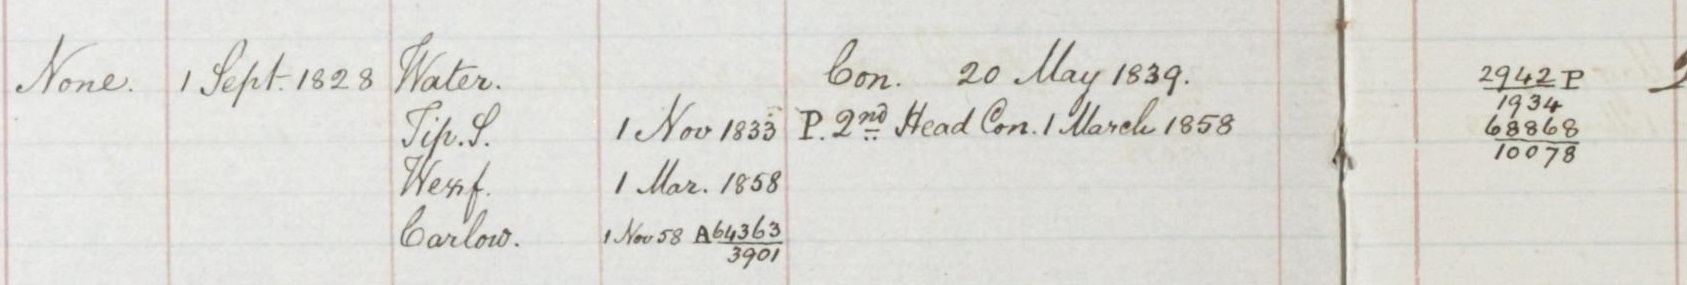 None. 1 Sept. 1828 Water. Con. 20 May 1839. 2942 P
1934
Tip. S. 1 Nov 1833 P. 2nd Head Con. 1 March 1858 68868
10078
Wexf. 1 Mar. 1858
Carlow. 1 Nov 58 A 64363
3901